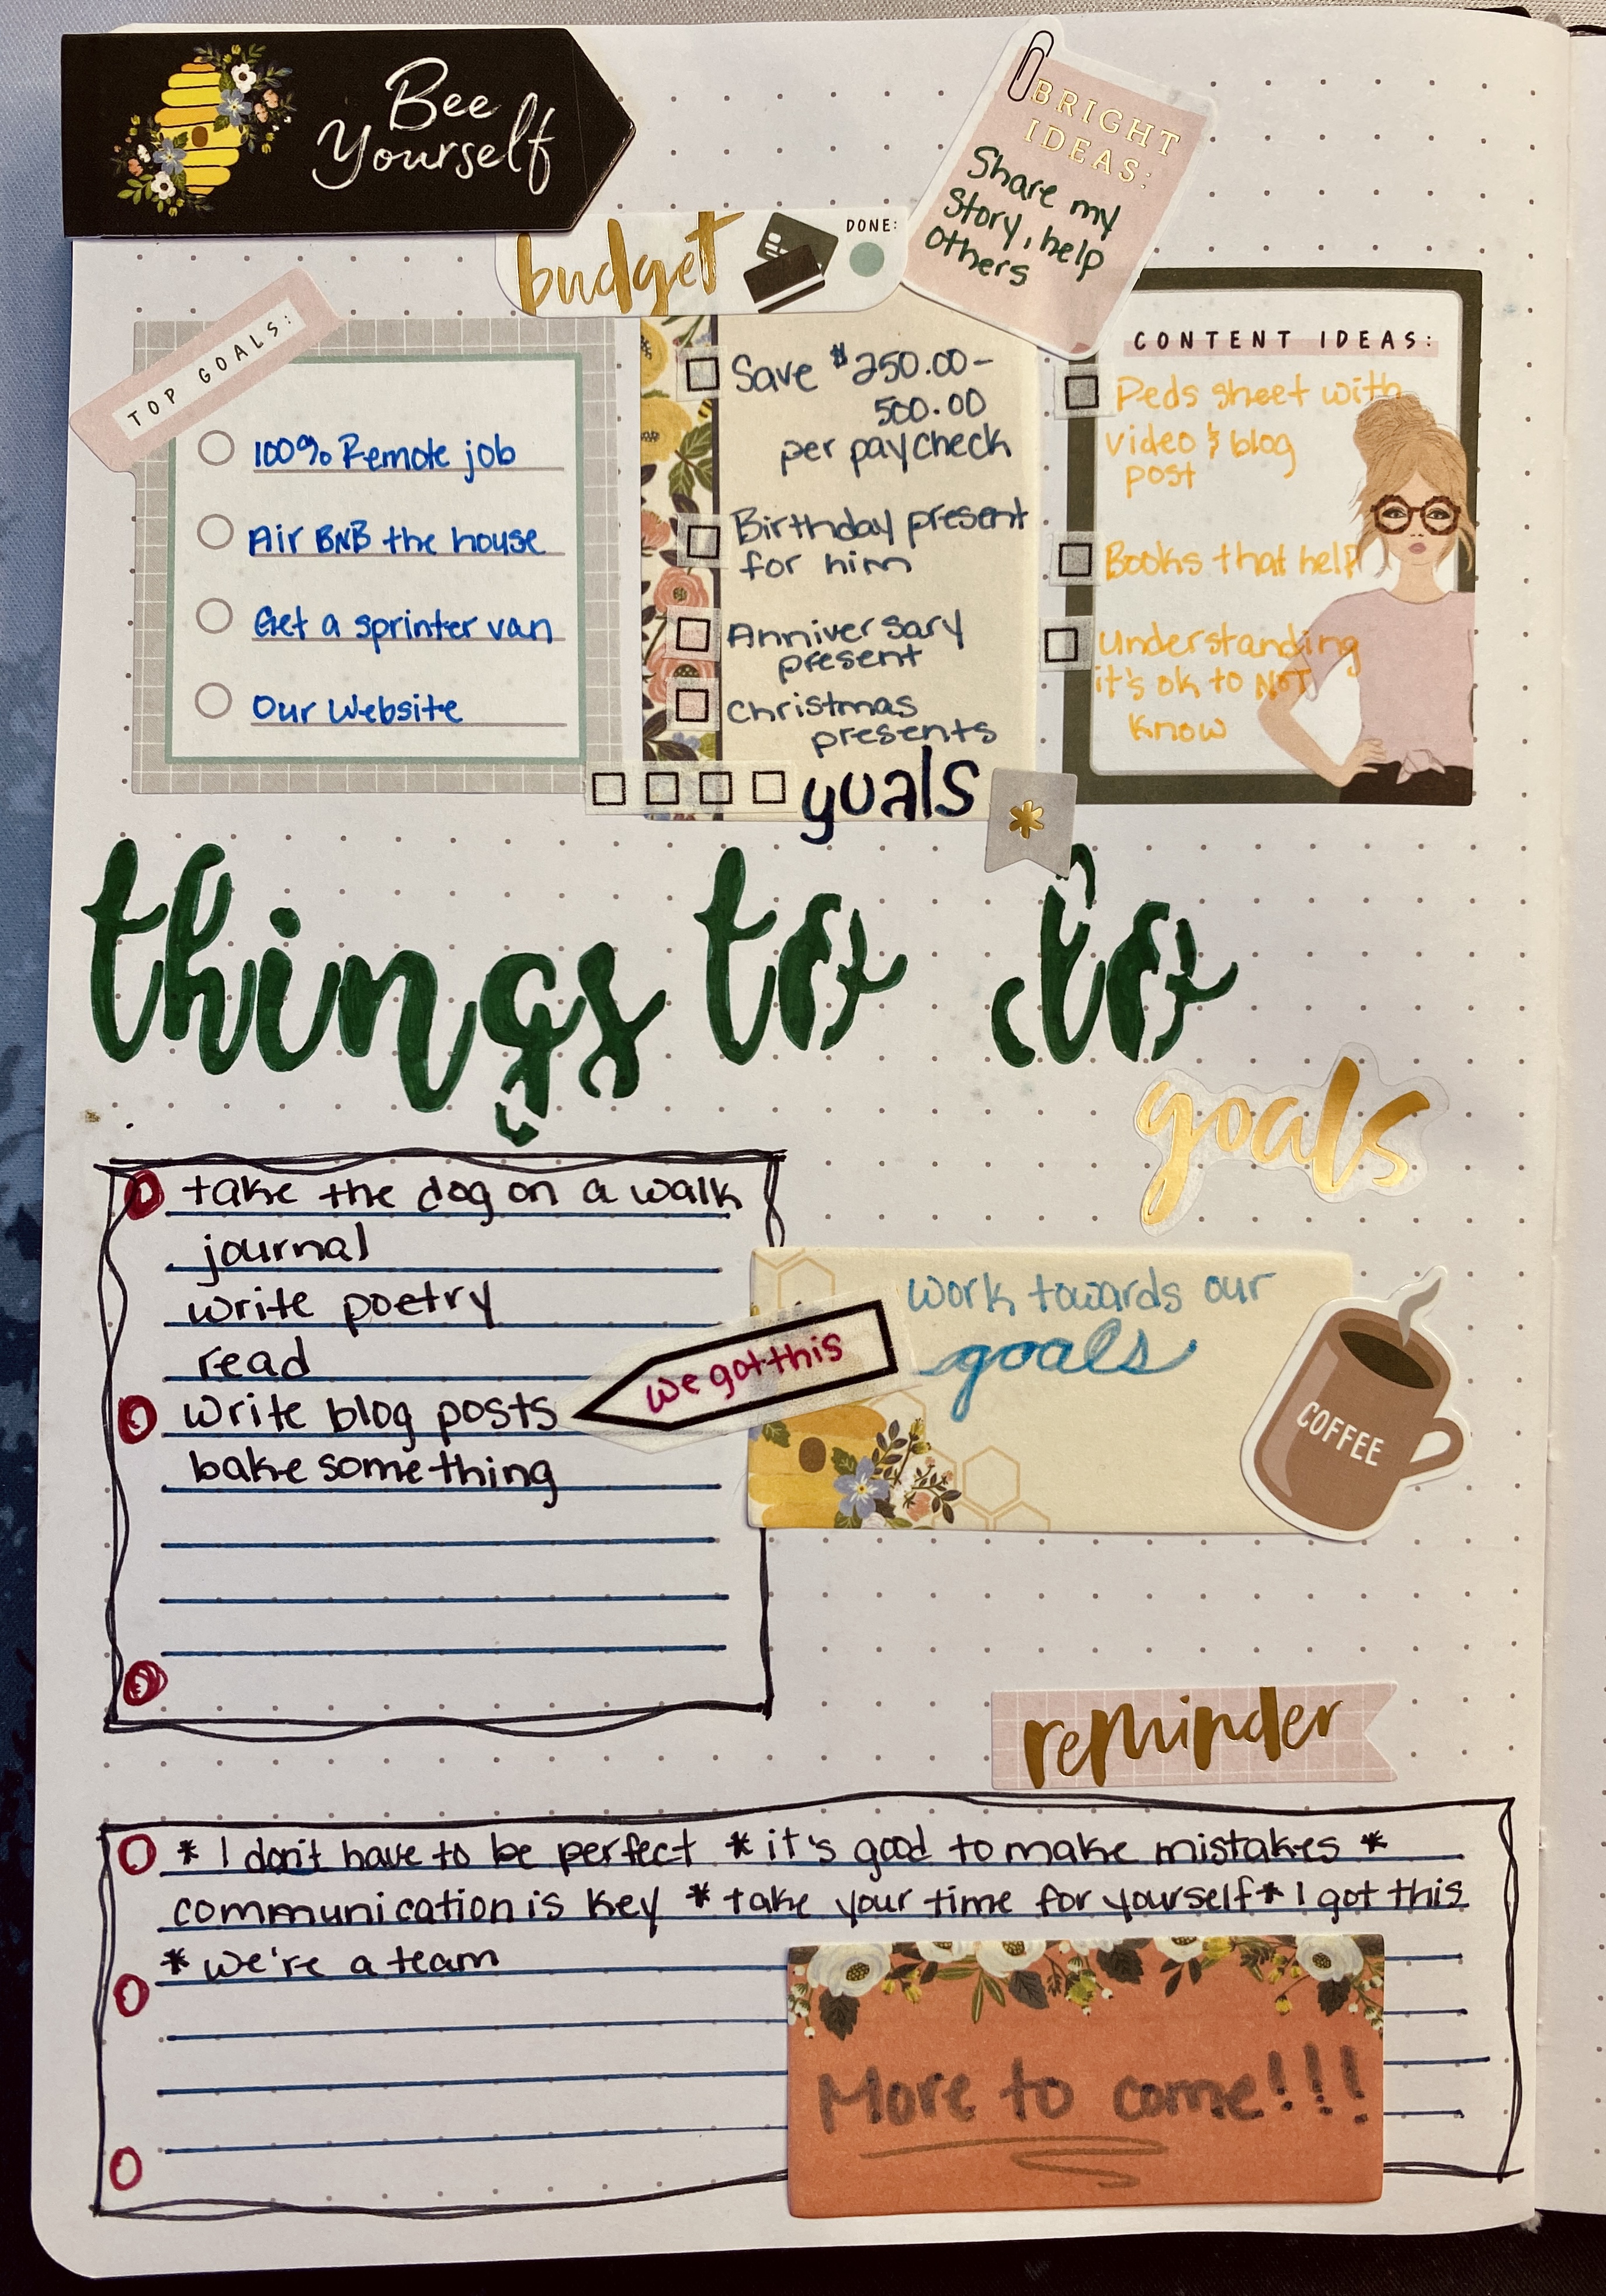 Bee
Yourself
BRIGHT
IDEAS:
Share my
Story, help
others
budget
DONE:
TOP GOALS:
100% Remote job
Air BNB the house
Get a sprinter van
Our Website
Save $250.00-
500.00
per paycheck
Birthday present
for him
Anniversary
present
Christmas
presents
goals
CONTENT IDEAS:
Peds sheet with
video & blog
post
Books that help
Understanding
it's ok to NOT
know
things to do
goals
take the dog on a walk
journal
write poetry
read
write blog posts
bake something
we got this
work towards our
goals
COFFEE
reminder
* I don't have to be perfect * it's good to make mistakes *
communication is key * take your time for yourself * I got this
* we're a team
More to come!!!